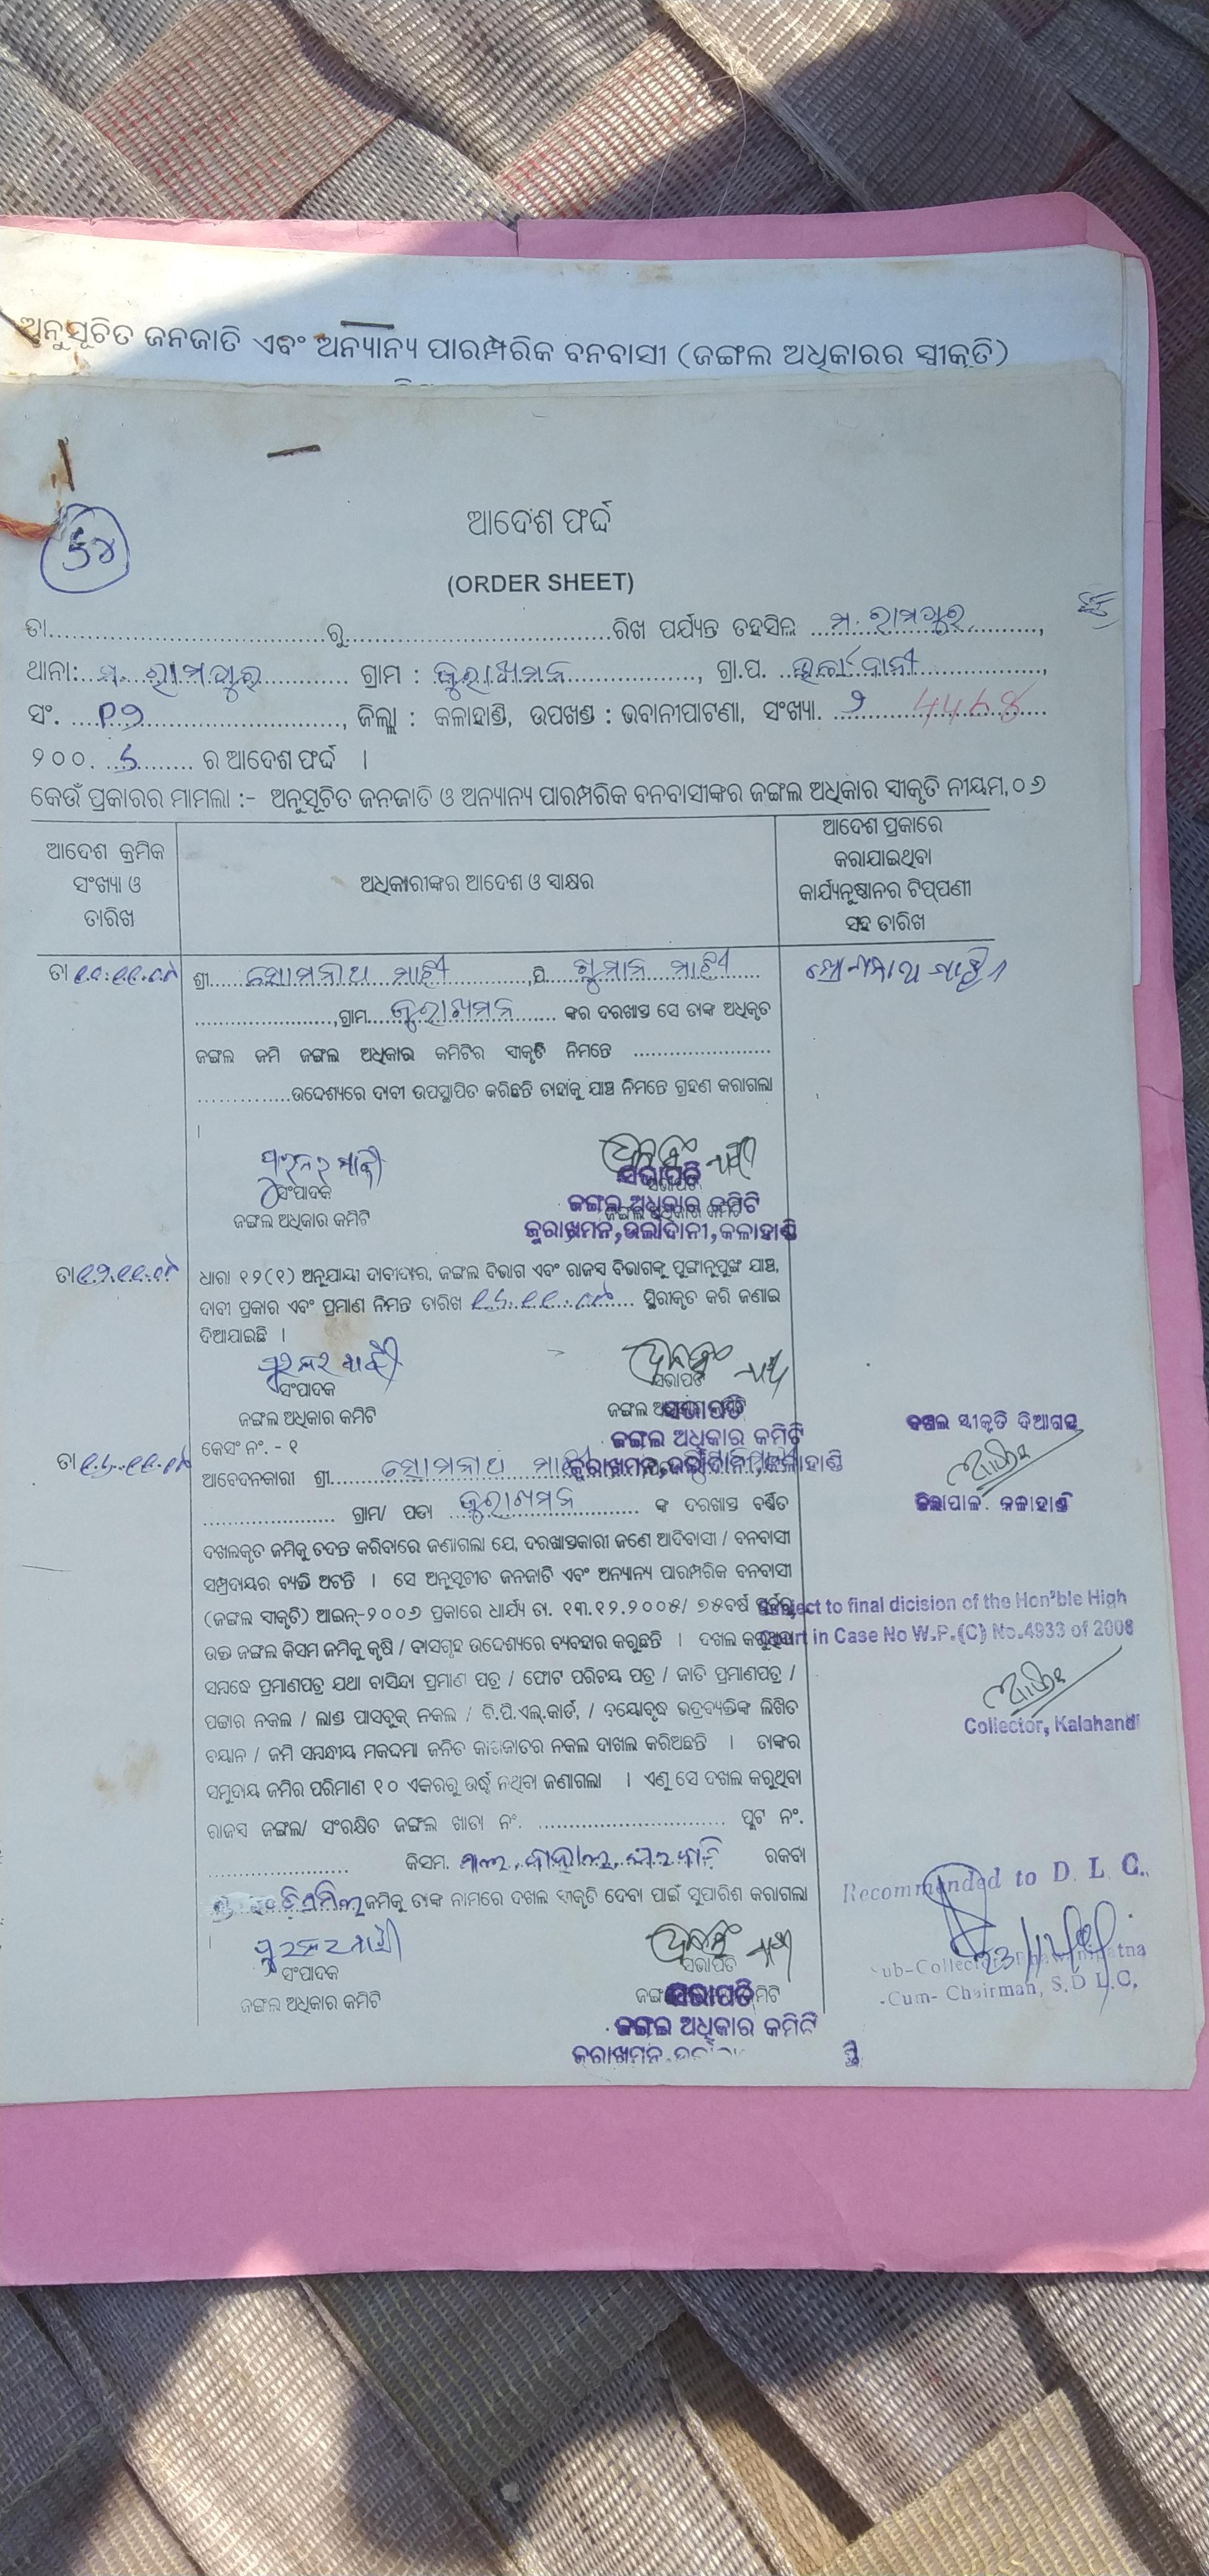 ଅନୁସୂଚିତ ଜନଜାତି ଏବଂ ଅନ୍ୟାନ୍ୟ ପାରମ୍ପରିକ ବନବାସୀ (ଜଙ୍ଗଲ ଅଧିକାରର ସ୍ୱୀକୃତି)
ଆଦେଶ ଫର୍ଦ୍ଦ
(ORDER SHEET)
ତା..............................ରୁ..............................ରିଖ ପର୍ଯ୍ୟନ୍ତ ତହସିଲ ...ମ. ରାମପୁର...,
ଥାନା:...ମ. ରାମପୁର... ଗ୍ରାମ : ଜୁରାଖମନ..., ଗ୍ରା.ପ. ...
ସଂ. ..., ଜିଲ୍ଲା : କଳାହାଣ୍ଡି, ଉପଖଣ୍ଡ : ଭବାନୀପାଟଣା, ସଂଖ୍ୟା. ୨ 4468
୨୦୦. ୬ ... ର ଆଦେଶ ଫର୍ଦ୍ଦ ।
କେଉଁ ପ୍ରକାରର ମାମଲା :- ଅନୁସୂଚିତ ଜନଜାତି ଓ ଅନ୍ୟାନ୍ୟ ପାରମ୍ପରିକ ବନବାସୀଙ୍କର ଜଙ୍ଗଲ ଅଧିକାର ସ୍ୱୀକୃତି ନୀୟମ,୦୬
ଆଦେଶ କ୍ରମିକ
ସଂଖ୍ୟା ଓ
ତାରିଖ
ଅଧିକାରୀଙ୍କର ଆଦେଶ ଓ ସ୍ୱାକ୍ଷର
ଆଦେଶ ପ୍ରକାରେ
କରାଯାଇଥିବା
କାର୍ଯ୍ୟନୁଷ୍ଠାନର ଟିପ୍ପଣୀ
ସହ ତାରିଖ
ତା ୧୧.୧୧.୦୯ ଶ୍ରୀ... ସୋମନାଥ ମାଝୀ ...,ପି... ଗୁମାନ ମାଝୀ ...
...,ଗ୍ରାମ... ଜୁରାଖମନ ... ଙ୍କର ଦରଖାସ୍ତ ସେ ତାଙ୍କ ଅଧିକୃତ
ଜଙ୍ଗଲ ଜମି ଜଙ୍ଗଲ ଅଧିକାର କମିଟିର ସ୍ୱୀକୃତି ନିମନ୍ତେ ........................
...............ଉଦ୍ଦେଶ୍ୟରେ ଦାବୀ ଉପସ୍ଥାପିତ କରିଛନ୍ତି ତାହାକୁ ଯାଞ୍ଚ ନିମନ୍ତେ ଗ୍ରହଣ କରାଗଲା
।
ସଂପାଦକ
ଜଙ୍ଗଲ ଅଧିକାର କମିଟି
ସଭାପତି
ଜଙ୍ଗଲ ଅଧିକାର କମିଟି
ଜୁରାଖମନ,ଉର୍ଲାଦାନୀ,କଳାହାଣ୍ଡି
ତା ୧୨.୧୧.୦୯ ଧାରା ୧୨(୧) ଅନୁଯାୟୀ ଦାବୀଦାର, ଜଙ୍ଗଲ ବିଭାଗ ଏବଂ ରାଜସ୍ୱ ବିଭାଗଙ୍କୁ ପୁଙ୍ଖାନୁପୁଙ୍ଖ ଯାଞ୍ଚ,
ଦାବୀ ପ୍ରକାର ଏବଂ ପ୍ରମାଣ ନିମନ୍ତ ତାରିଖ ୧୬.୧୧.୦୯ ସ୍ଥିରୀକୃତ କରି ଜଣାଇ
ଦିଆଯାଇଛି ।
ସଂପାଦକ
ଜଙ୍ଗଲ ଅଧିକାର କମିଟି
ସଭାପତି
ଜଙ୍ଗଲ ଅଧିକାର କମିଟି
ଜୁରାଖମନ,ଉର୍ଲାଦାନୀ,କଳାହାଣ୍ଡି
କେସଂ ନଂ. - ୧
ତା ୧୬.୧୧.୦୯ ଆବେଦନକାରୀ ଶ୍ରୀ... ସୋମନାଥ ମାଝୀ
... ଗ୍ରାମ/ ପଡା ଜୁରାଖମନ ... ଙ୍କ ଦରଖାସ୍ତ ବର୍ଣ୍ଣିତ
ଦଖଲକୃତ ଜମିକୁ ତଦନ୍ତ କରିବାରେ ଜଣାଗଲା ଯେ, ଦରଖାସ୍ତକାରୀ ଜଣେ ଆଦିବାସୀ / ବନବାସୀ
ସମ୍ପ୍ରଦାୟର ବ୍ୟକ୍ତି ଅଟନ୍ତି । ସେ ଅନୁସୂଚୀତ ଜନଜାତି ଏବଂ ଅନ୍ୟାନ୍ୟ ପାରମ୍ପରିକ ବନବାସୀ
(ଜଙ୍ଗଲ ସ୍ୱୀକୃତି) ଆଇନ୍-୨୦୦୬ ପ୍ରକାରେ ଧାର୍ଯ୍ୟ ତା. ୧୩.୧୨.୨୦୦୫/ ୭୫ବର୍ଷ ପୂର୍ବରୁ
ଉକ୍ତ ଜଙ୍ଗଲ କିସମ ଜମିକୁ କୃଷି / ବାସଗୃହ ଉଦ୍ଦେଶ୍ୟରେ ବ୍ୟବହାର କରୁଛନ୍ତି । ଦଖଲ କରୁଥିବା
ସମ୍ବନ୍ଧେ ପ୍ରମାଣପତ୍ର ଯଥା ବାସିନ୍ଦା ପ୍ରମାଣ ପତ୍ର / ଫୋଟ ପରିଚୟ ପତ୍ର / ଜାତି ପ୍ରମାଣପତ୍ର /
ପଟ୍ଟାର ନକଲ / ଲାଣ୍ଡ ପାସବୁକ୍ ନକଲ / ବି.ପି.ଏଲ୍.କାର୍ଡ, / ବୟୋବୃଦ୍ଧ ଭଦ୍ରବ୍ୟକ୍ତିଙ୍କ ଲିଖିତ
ବୟାନ / ଜମି ସମ୍ବନ୍ଧୀୟ ମକଦ୍ଦମା ଜନିତ କାଗଜାତର ନକଲ ଦାଖଲ କରିଅଛନ୍ତି । ତାଙ୍କର
ସମୁଦାୟ ଜମିର ପରିମାଣ ୧୦ ଏକରରୁ ଉର୍ଦ୍ଧ୍ୱ ନଥିବା ଜଣାଗଲା । ଏଣୁ ସେ ଦଖଲ କରୁଥିବା
ରାଜସ୍ୱ ଜଙ୍ଗଲ/ ସଂରକ୍ଷିତ ଜଙ୍ଗଲ ଖାତା ନଂ. .............................. ପ୍ଲଟ ନଂ.
...................... କିସମ. ... ରକବା
ଜମିକୁ ତାଙ୍କ ନାମରେ ଦଖଲ ସ୍ୱୀକୃତି ଦେବା ପାଇଁ ସୁପାରିଶ କରାଗଲା
।
ସଂପାଦକ
ଜଙ୍ଗଲ ଅଧିକାର କମିଟି
ସଭାପତି
ଜଙ୍ଗଲ ଅଧିକାର କମିଟି
ସୋମନାଥ ମାଝୀ
ଦଖଲ ସ୍ୱୀକୃତି ଦିଆଗଲା
ଜିଲ୍ଲାପାଳ. କଳାହାଣ୍ଡି
Subject to final dicision of the Hon'ble High
Court in Case No W.P.(C) No.4933 of 2008
Collector, Kalahandi
Recommended to D. L. C.
23/12/09
Sub-Collector, Bhawanipatna
-Cum- Chairman, S.D L.C.